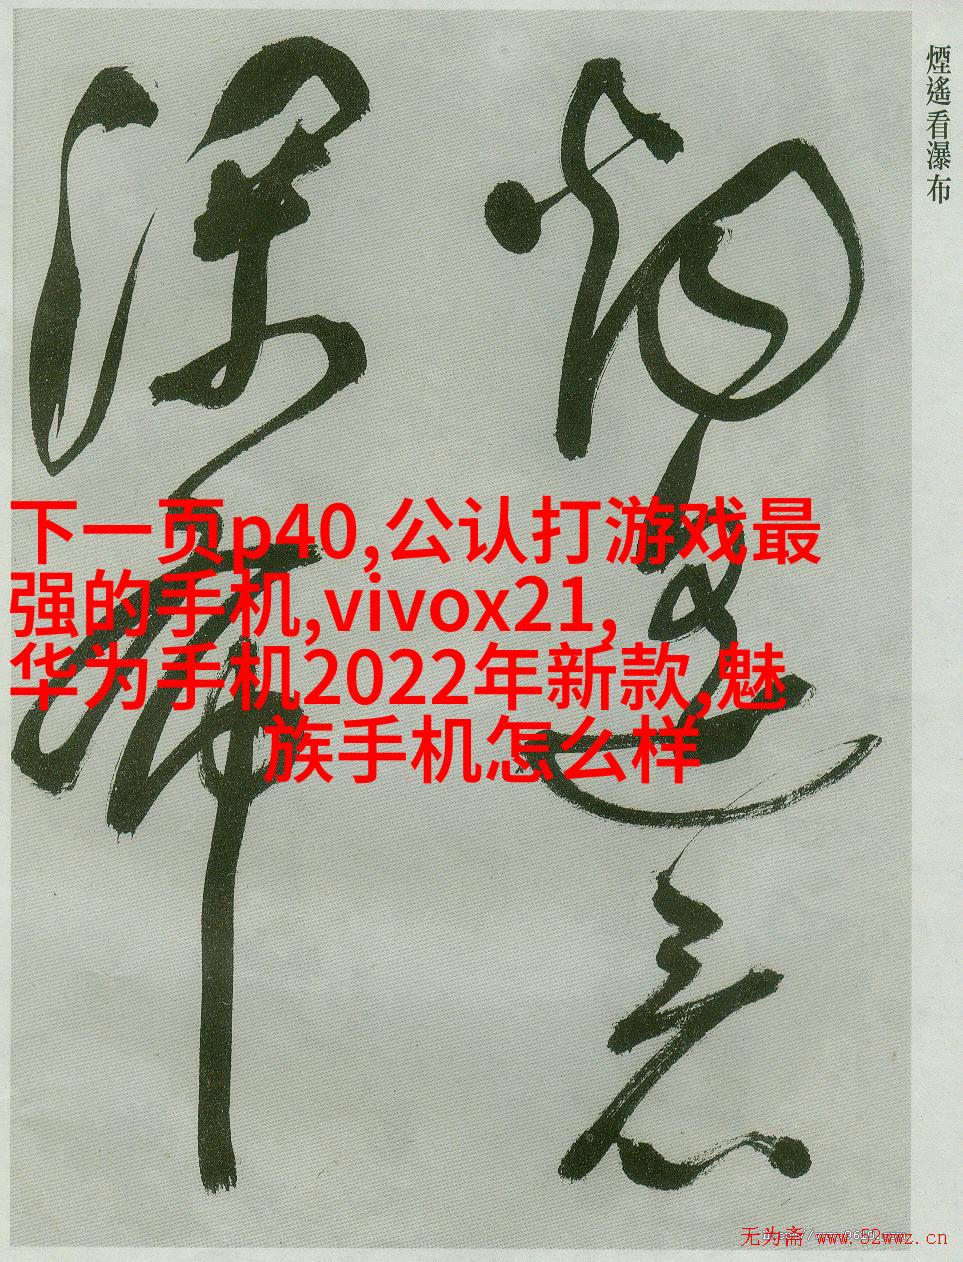 煙遙看瀑布
煙
遙
看
瀑
布
下一页p40,公认打游戏最
强的手机,vivox21,
华为手机2022年新款,魅
族手机怎么样
无为斋 www.52wwz.cn